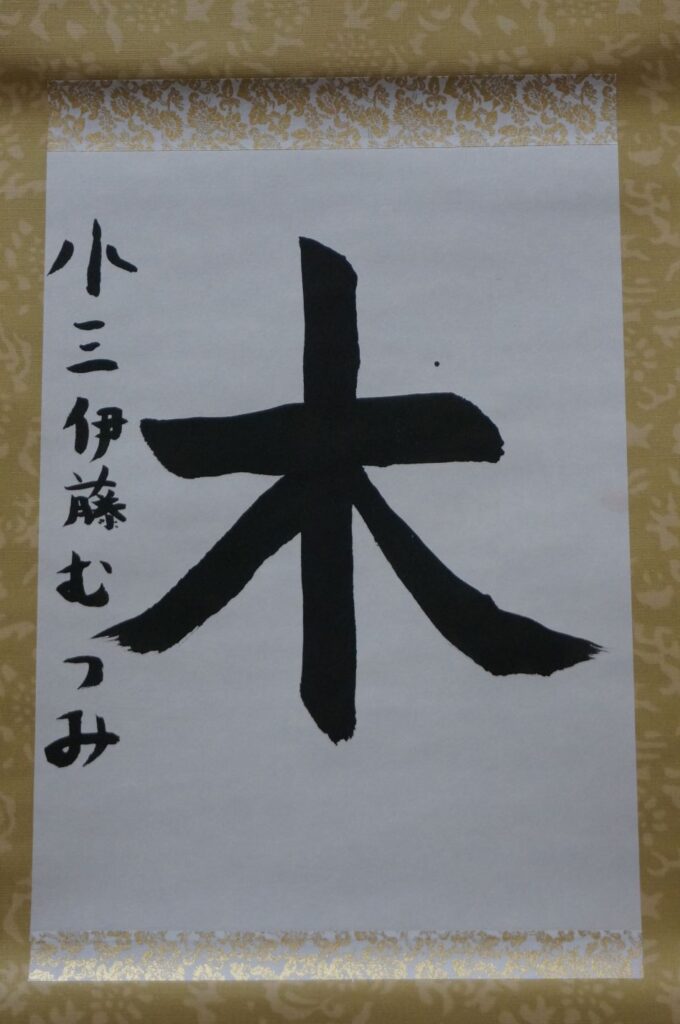 木
小三伊藤むつみ